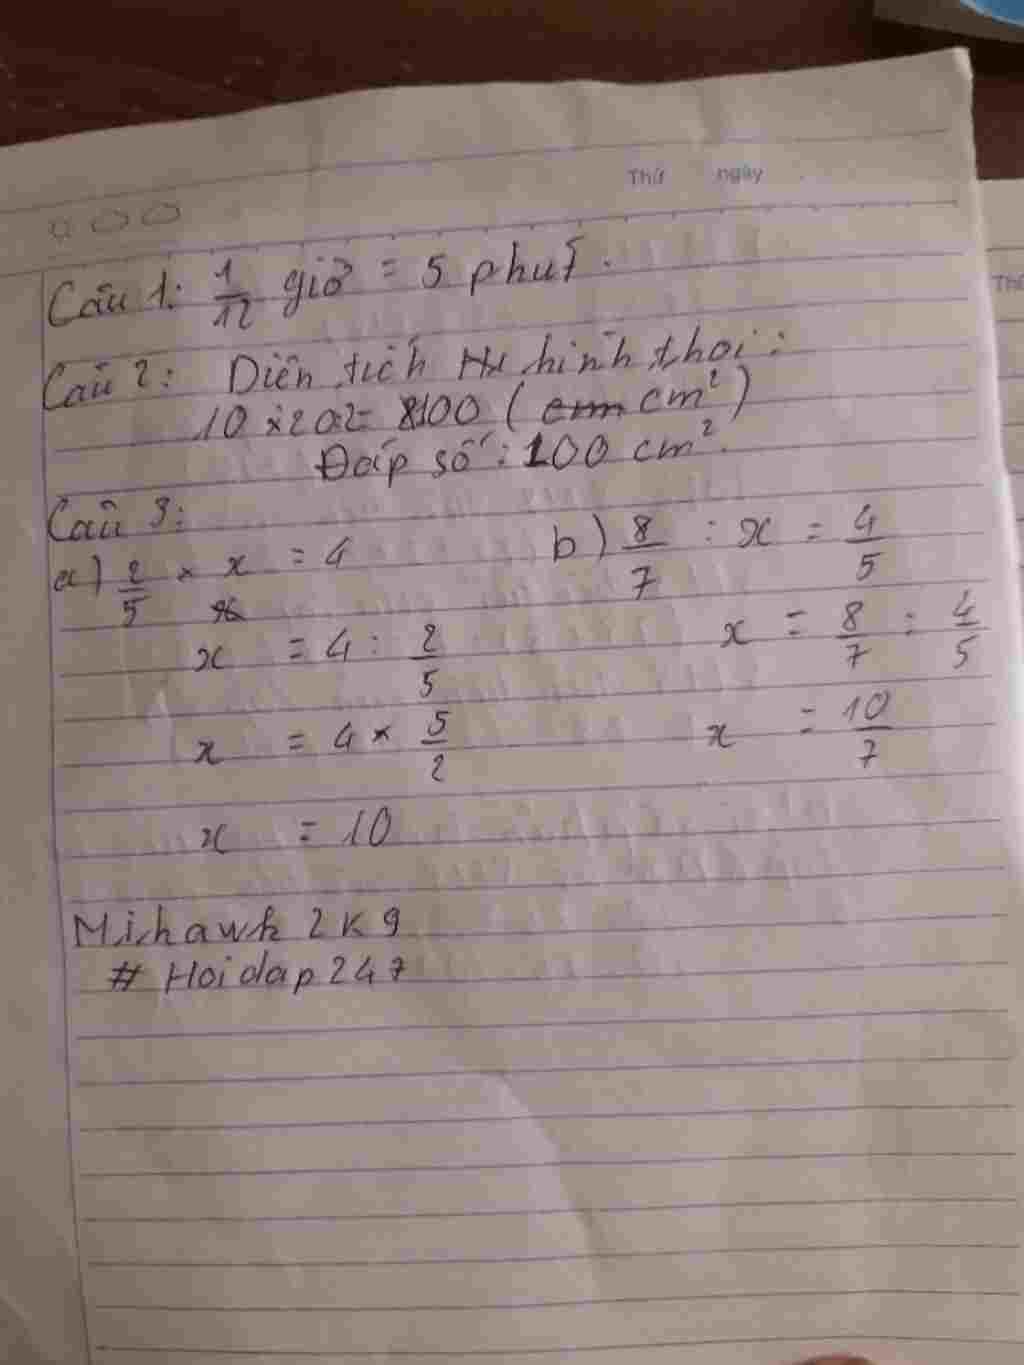 Thứ ngày
Câu 1: 1/12 giờ = 5 phút.
Câu 2: Diện tích hình thoi:
10 × 20 : 2 = 100 (cm²)
Đáp số: 100 cm².
Câu 3:
a) 2/5 × x = 4 b) 8/7 : x = 4/5
x = 4 : 2/5 x = 8/7 : 4/5
x = 4 × 5/2 x = 10/7
x = 10
Mihawk 2K9
# Hoidap247